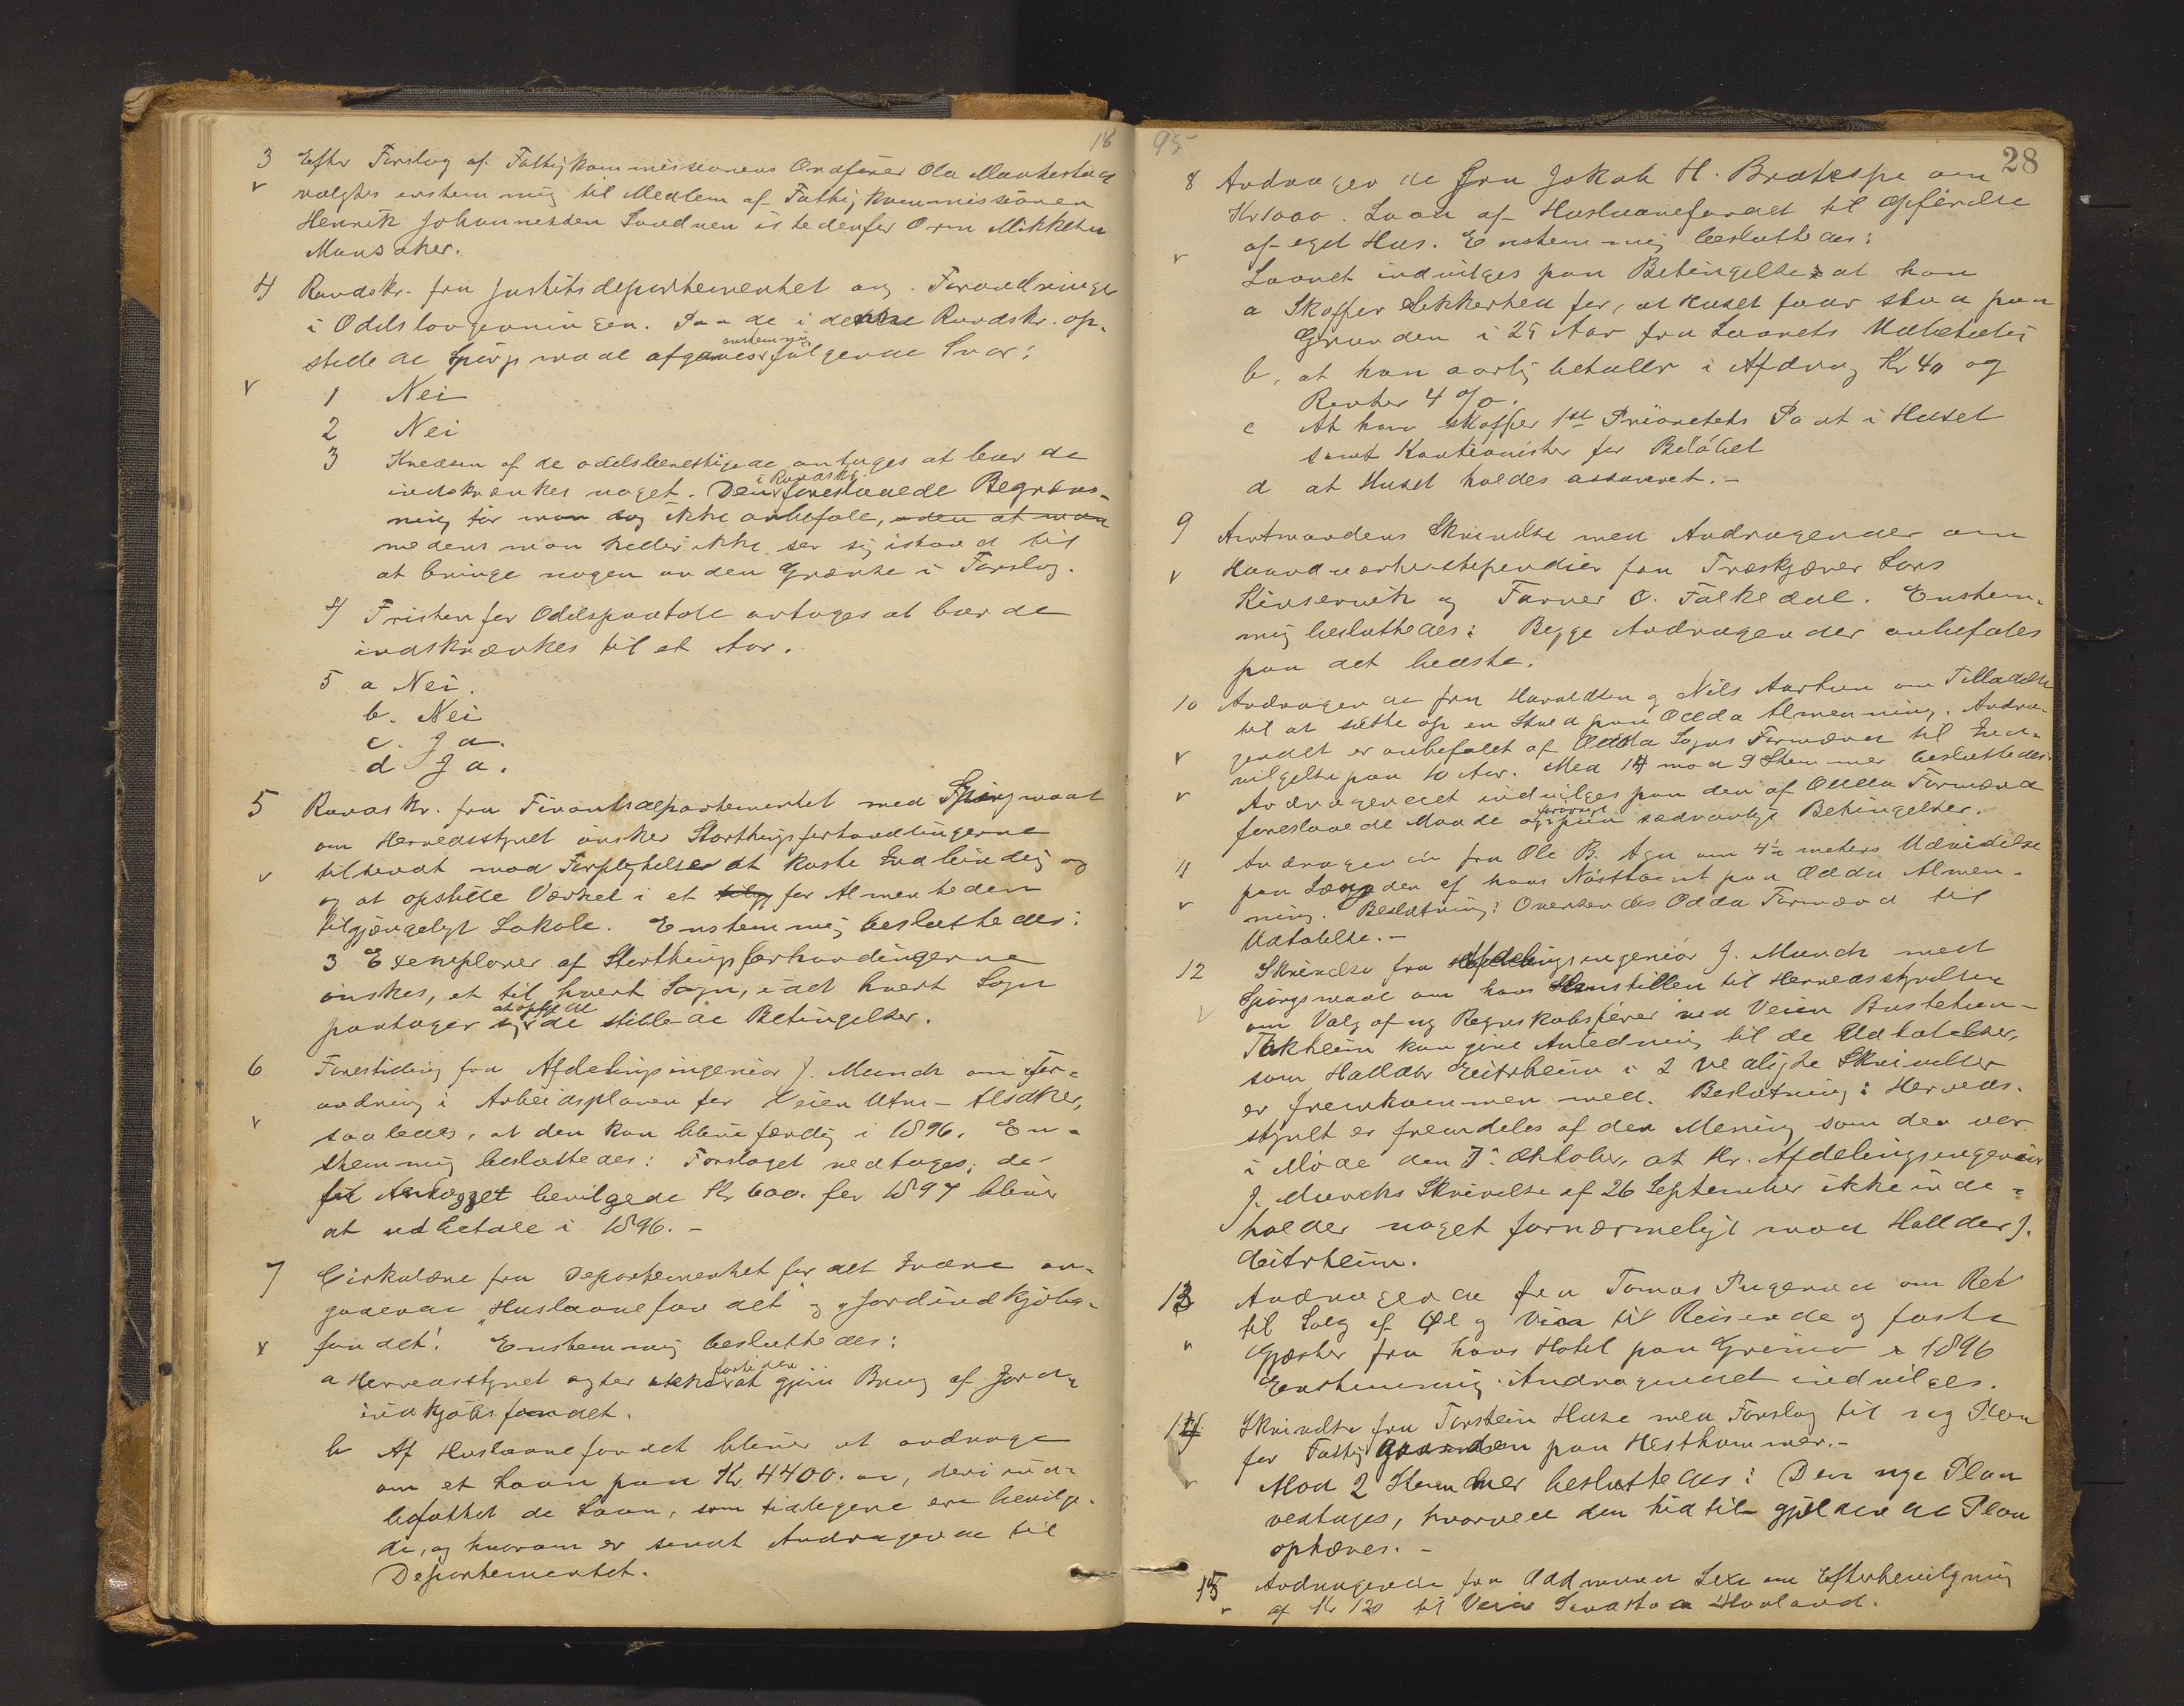 18
3 Efter Forslag af Fattigkommissionens Ordfører Ola Mankestad
valgtes enstemmig til Medlem af Fattigkommissionen
Henrik Johannessen Sandven istedenfor Orm Mikkelsen
Mansaker.
4 Rundskr. fra Justitsdepartementet ang. Forandringer
i Odelslovgivningen. Paa de i dette Rundskr. op-
stillede Spørgsmaal afgaves enstemmig følgende Svar:
1 Nei
2 Nei
3 Kredsen af de odelsberettigede antages at burde
indskrænkes noget. Den i Rundskr. foreslaaede Begræns-
ning tør man dog ikke anbefale, uden at man
medens man heller ikke ser sig istand til
at bringe nogen anden Grænse i Forslag.
4 Fristen for Odelspaatale antages at burde
indskrænkes til et Aar.
5 a Nei.
b. Nei
c. Ja.
d Ja.
5 Rundskr. fra Finantsdepartementet med Spørgsmaal
om Herredsstyret ønsker Storthingsforhandlingerne
tilsendt mod Forpligtelse at koste Indbinding og
og at opstille Værket i et tilg for Almenheden
tilgjængeligt Lokale. Enstemmig besluttedes:
3 Exemplarer af Storthingsforhandlingerne
ønskes, et til hvert Sogn, idet hvert Sogn
paatager sig at opfylde de stillede Betingelser.
6 Forestilling fra Afdelingsingeniør J. Munch om For-
andring i Arbeidsplanen for Veien Utne - Alsaker,
saaledes, at den kan blive færdig i 1896. En-
stemmig besluttedes: Forslaget vedtages; de
til Anlægget bevilgede Kr 600. for 1897 bliver
at udbetale i 1896. -
7 Cirkulære fra Departementet for det Indre an-
gaaende "Huslaanefondet" og "Jordindkjøbs-
fondet". Enstemmig besluttedes:
a Herredsstyret agter ikke for tiden at gjøre Brug af Jord-
indkjøbsfondet.
b Af Huslaanefondet bliver at andrage
om et Laan paa Kr. 4400.00, deri ind-
befattet de Laan, som tidligere ere bevilge-
de, og hvorom er sendt Andragende til
Departementet.
95
28
8 Andragende fra Jakob H. Bratespe om
Kr 1000. Laan af Huslaanefondet til Opførelse
af eget Hus. Enstemmig besluttedes:
Laanet indvilges paa Betingelse at han
a Skaffer Sikkerhed for, at Huset faar staa paa
Grunden i 25 Aar fra Laanets Udbetaling
b, at han aarlig betaler i Afdrag Kr 40 og
Renter 4 %.
c At han skaffer 1ste Prioritets Pant i Huset
samt Kautionister for Beløbet
d at Huset holdes assureret. -
9 Amtmandens Skrivelse med Andragender om
Haandværksstipendier fra Træskjærer Lars
Kinservik og Farver O. Falkedal. Enstem-
mig besluttedes: Begge Andragender anbefales
paa det bedste.
10 Andragende fra Haraldsen og Nils Aarhun om Tilladelse
til at sætte op en Stue paa Odda Almenning. Andra-
gendet er anbefalet af Odda Sogns Formænd til Ind-
vilgelse paa 10 Aar. Med 14 mod 9 Stemmer besluttedes:
Andragendet indvilges paa den af Odda Formænd
foreslaaede Maade og forøvrigt paa sædvanlige Betingelser.
11 Andragende fra Ole B. Aga om 4½ meters Udvidelse
paa Længden af hans Nøsttomt paa Odda Almen-
ning. Beslutning: Oversendes Odda Formænd til
Udtalelse. -
12 Skrivelse fra Afdelingsingeniør J. Munch med
Spørgsmaal om hans Henstillen til Herredsstyrelsen
om Valg af ny Regnskabsfører ved Veien Bustetun -
Tokheim kan give Anledning til de Udtalelser,
som Halldor Eitrheim i 2 vedlagte Skrivelser
er fremkommen med. Beslutning: Herreds-
styret er fremdeles af den Mening som den var
i Møde den 7. Oktober, at Hr. Afdelingsingeniør
J. Munchs Skrivelse af 26 September ikke inde-
holder noget fornærmeligt mod Halldor J.
Eitrheim.
13 Andragende fra Tomas Pugerud om Ret
til Salg af Øl og Vin til Reisende og faste
Gjæster fra hans Hotel paa Grimo i 1896
Enstemmig: Andragendet indvilges.
14 Skrivelse fra Torstein Huse med Forslag til ny Plan
for Fattiggaarden paa Hesthammer. -
Mod 2 Stemmer besluttedes: Den nye Plan
vedtages, hvorved den hidtil gjældende Plan
ophæves. -
15 Andragende fra Oddmund Sexe om Efterbevilgning
af Kr 120 til Veien Hovland.